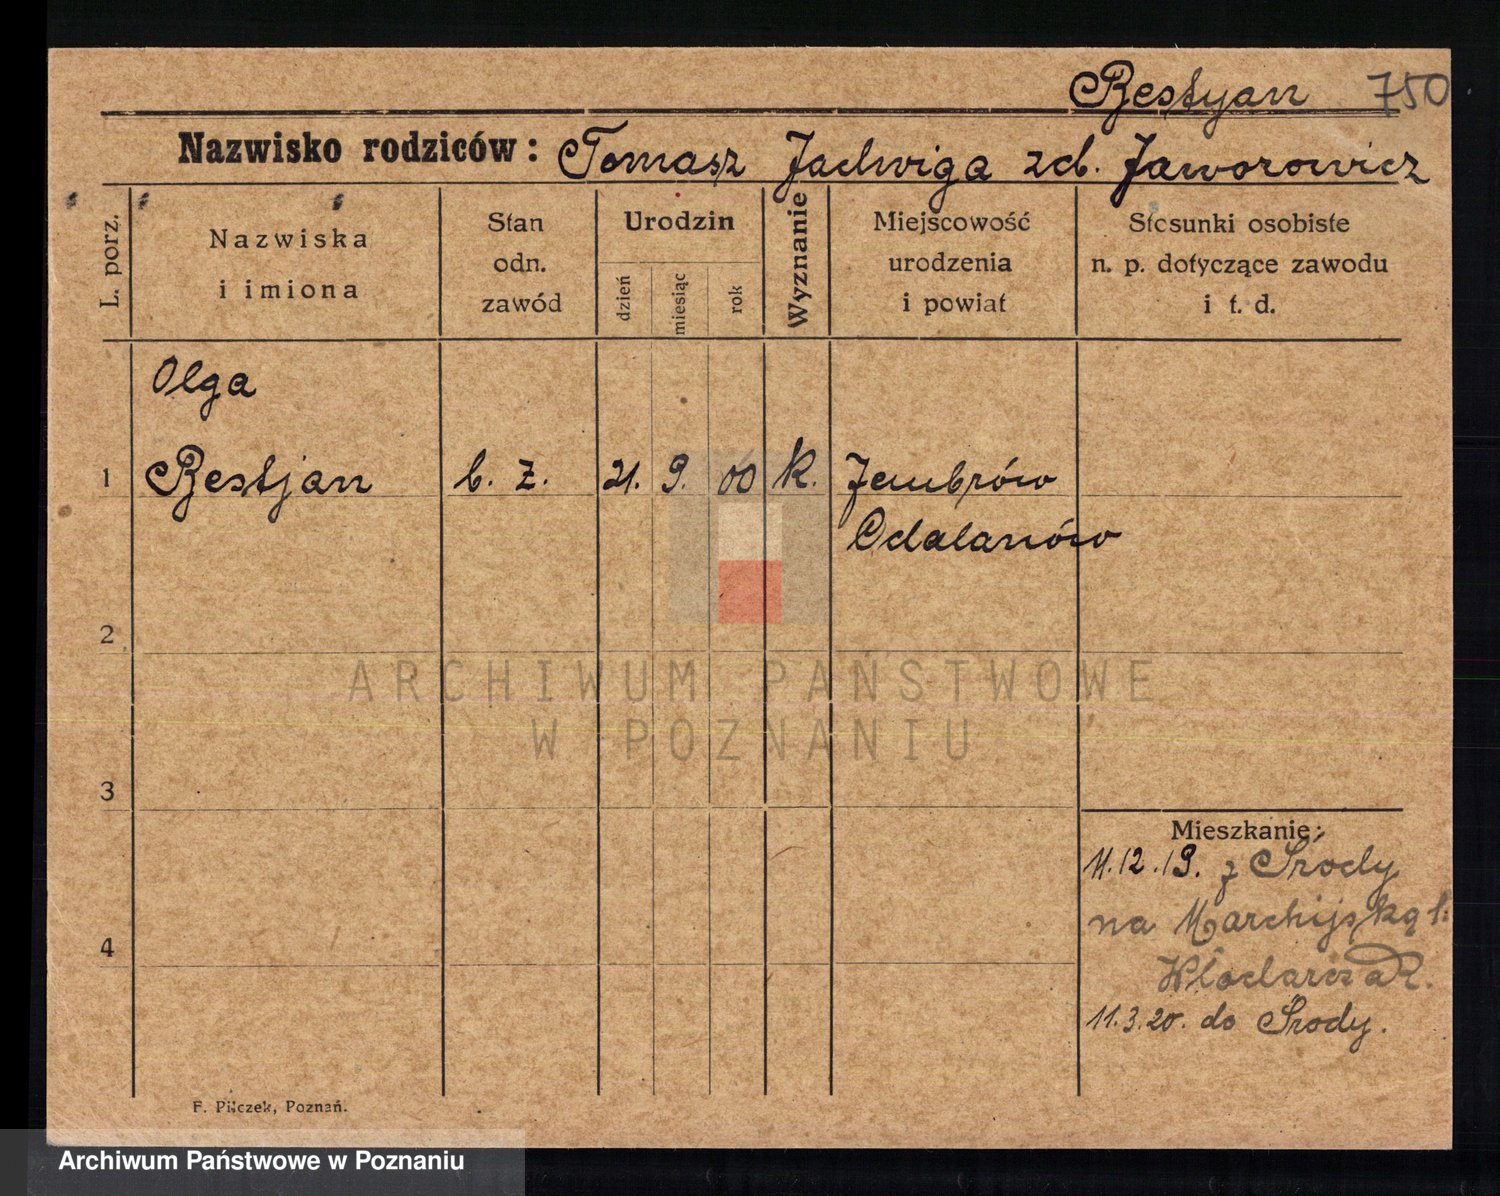 Bestyan 750
Nazwisko rodziców: Tomasz Jadwiga zd. Jaworowicz
L. porz.
Nazwiska
i imiona
Stan
odn.
zawód
Urodzin
dzień
miesiąc
rok
Wyznanie
Miejscowość
urodzenia
i powiat
Stosunki osobiste
n. p. dotyczące zawodu
i t. d.
Olga
1 Bestjan b. z. 21. 9. 00 k. Jembrów
Odalanów
2
ARCHIWUM PAŃSTWOWE
W POZNANIU
3
Mieszkanie:
11.12.19. z Środy
na
4
11.3.20. do Środy.
F. Pilczek, Poznań.
Archiwum Państwowe w Poznaniu